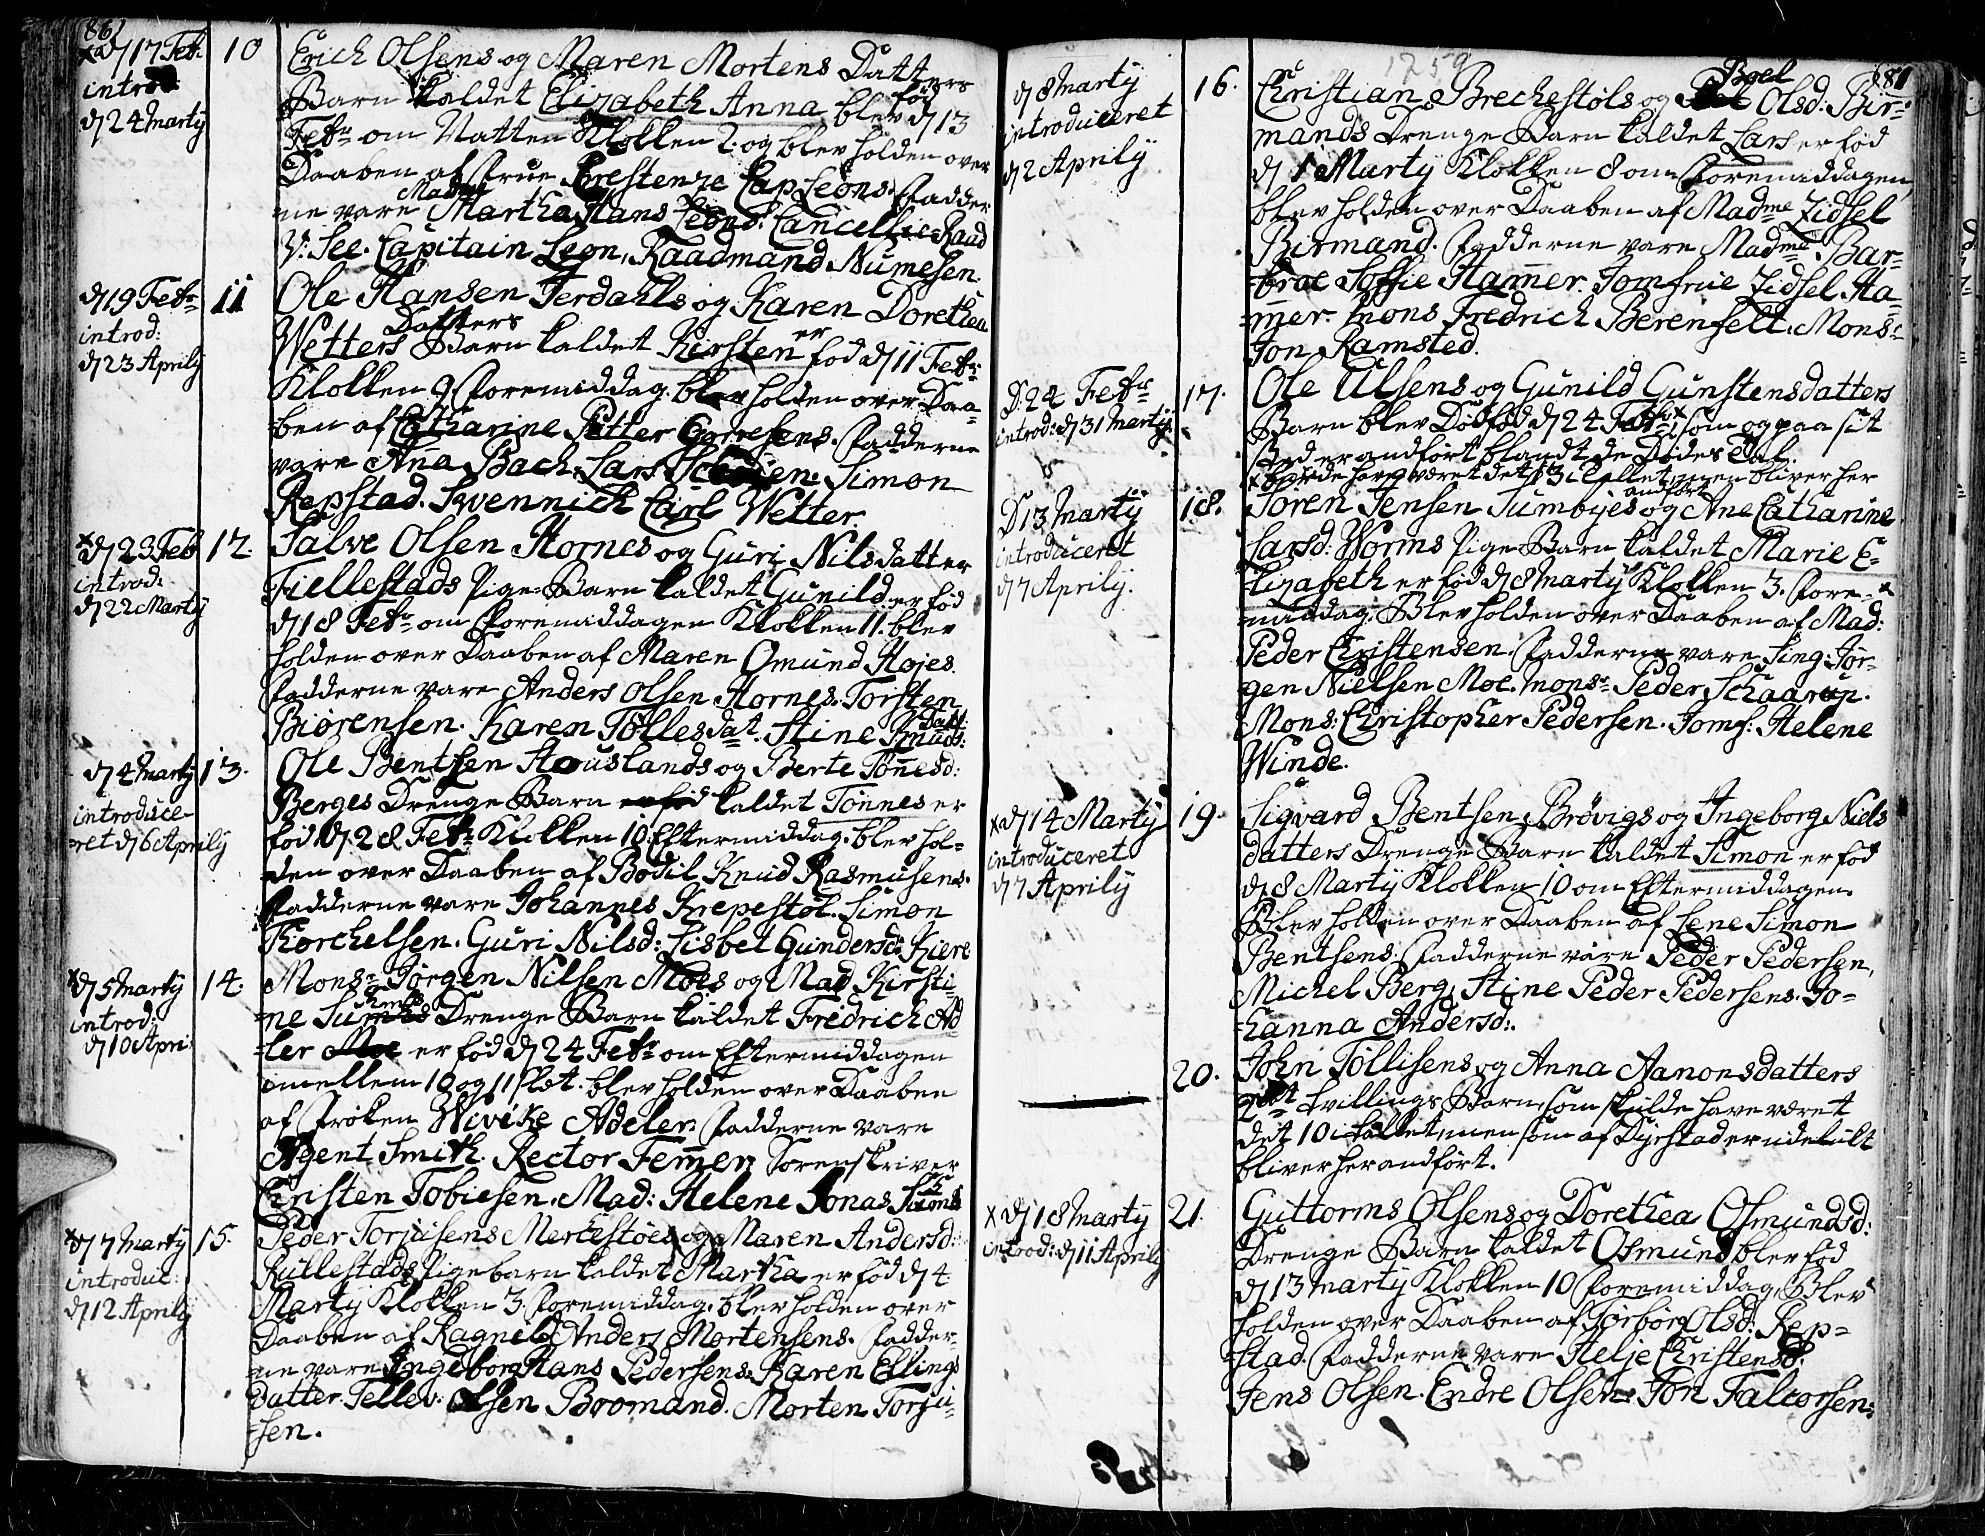 86
x d 17 Febr:
introd:
d 24 Marty
10
Erich Olsens og Maren Mortens Datters
Barn kaldet Elizabeth Anna, blev fød d 13
Febr. om Natten Klokken 2. og blev holden over
Daaben af Frue Crestenze Cap: Leons. Fadder
ne vare Madme Martha Hans Leons. Cancellie-Raad
V: See. Capitain Leon, Raadmand Numesen.
d 19 Febr.
introd:
d 23 Aprily
11
Ole Hansen Ferdahls og Karen Dorethea
Wetters Datters Barn kaldet Kirsten er fød d 11 Febr:
Klokken 9 Foremiddag. blev holden over Daa-
ben af Catharine Petter Gorresens. Fadderne
vare Anna Bach. Lars Simon
Repstad. Svennich Carl Wetter.
x d 23 Feb
introd:
d 22 Marty
12.
Salve Olsen Hornes og Guri Nilsdatter
Fiellestads Pige-Barn kaldet Gunild er fød
d 18 Febr. om Foremiddagen Klokken 11. blev
holden over Daaben af Maren Omund Højes.
Fadderne vare Anders Olsen Hornes. Torsten
Biørensen. Karen Tollesdat. Stine Knuds: Datt:
d 4 Marty
introduce-
ret d 6 Aprily
13.
Ole Bentsen Houslands og Berte Tønnesd:
Berges Drenge Barn er fød kaldet Tønnes er
fød d 28 Febr. Klokken 10 Eftermiddag. blev hol-
den over Daaben af Bodil Knud Rasmusens.
Fadderne vare Johannes Krepestøl. Simon
Thorchelsen. Guri Nilsd: Lisbet Gundersd: Kiere
x d 5 Marty
introd:
d 10 Apri:
14.
Mons: Jørgen Nilsen Moes og Mad Kirsti-
ne Drenge Barn kaldet Fredrich Ad-
ler Moe er fød d 24 Febr om Eftermiddagen
imellem 10 og 11 Slet. blev holden over Daaben
af Frøken Wivike Adeler. Fadderne vare
Agent Smith. Rector Femmen Sorenskriver
Christen Tobiesen. Mad: Helene Jonas
x d 7 Marty
introduc:
d 12 Aprily
15.
Peder Torjusens Merkestøes og Maren Andersd:
Kullestads Pigebarn kaldet Martha er fød d 4
Marty Klokken 3. Foremiddag. blev holden over
Daaben af Ragneld Anders Mortensens. Fadder-
ne vare Ingeborg Hans Pedersens. Karen Ellings
datter. Tellev: Olsen Boomand. Morten Torju-
sen.
1259
87
d 8 Marty
introduceret
d 2 Aprily
16.
Christian Brechestøls og Boel Olsd: Bir-
mands Drenge Barn kaldet Lars er fød
d 1 Marty Klokken 8 om Foremiddagen,
blev holden over Daaben af Madme Zidsel
Birmand. Fadderne vare Madme: Bar-
broe Soffie Hammer. Jomfrue Zidsel Ha-
mmer. Mons Fredrich Berenfelt. Mons:
Jon Ramsted.
D: 24 Febr
introd: d 31 Marty.
17.
Ole Ulsens og Gunild Gunstensdatters
Barn blev Dødfød d 24 Febr x, som og paa sit
Sted er andført blandt de Dødes Tal.
x burde have været det 13 i Tallet, men bliver her
andført
D 13 Marty
introduceret
d 7 Aprily.
18.
Søren Jensen Sumbyes og Ane Catharine
Larsd: Worms Pige-Barn kaldet Marie E-
lizabeth er fød d 8 Marty Klokken 3. Fore-
middag. Blev holden over Daaben af Mad:
Peder Christensen. Fadderne vare Sing: Jør-
gen Nielsen Moe. Monsr. Peder Schaarup.
Mons: Christopher Pedersen. Jomf: Helene
Winde.
x d 14 Marty
introduceret
d 7 Aprily
19.
Sigvard Bentsen Brøvigs og Ingeborg Niels
datters Drenge Barn kaldet Simon er fød
d 8 Marty Klokken 10 om Eftermiddagen.
Blev holden over Daaben af Lene Simon
Bentsens. Fadderne vare Peder Pedersen,
Michel Berg, Stine Peder Pedersens. Jo-
hanna Andersd:.
20.
John Tollisens og Anna Aanonsdatters
Tvillings Barn, som skulde have været
det 10 i tallet, men som af Dyrstad er udelult
bliver her andført.
x d 18 Marty
introd: d 11 Aprily
21.
Guttorms Olsens og Dorethea Osmundsd:
Drenge Barn kaldet Osmund blev fød
d 13 Marty Klokken 10 Foremiddag, Blev
holden over Daaben af Torbor Olsd: Rep-
stad. Fadderne vare Helje Christensd.
Jens Olsen. Endre Olsen. Jon Falcorsen.